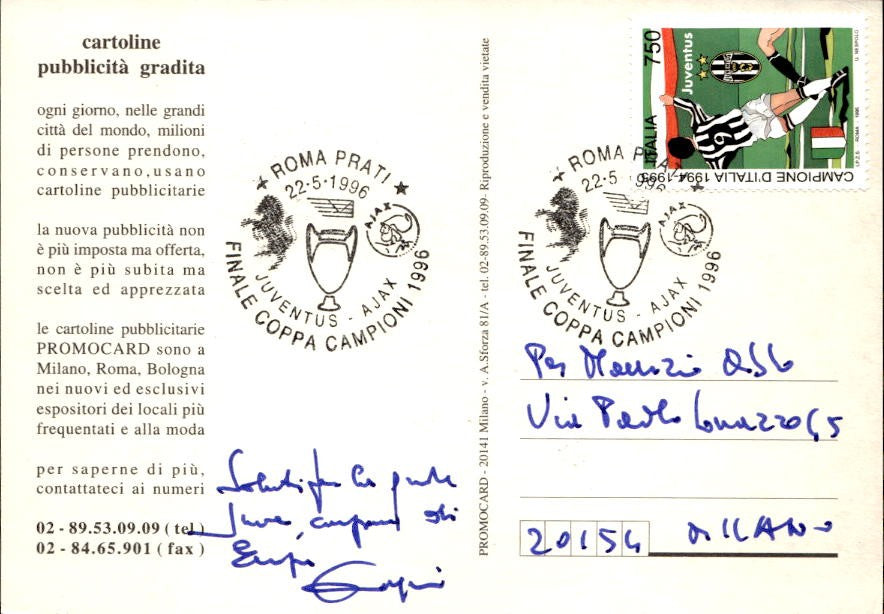 cartoline
pubblicità gradita
ogni giorno, nelle grandi
città del mondo, milioni
di persone prendono,
conservano, usano
cartoline pubblicitarie
la nuova pubblicità non
è più imposta ma offerta,
non è più subita ma
scelta ed apprezzata
le cartoline pubblicitarie
PROMOCARD sono a
Milano, Roma, Bologna
nei nuovi ed esclusivi
espositori dei locali più
frequentati e alla moda
per saperne di più,
contattateci ai numeri
02 - 89.53.09.09 ( tel )
02 - 84.65.901 ( fax )
ROMA PRATI
22-5-1996
AJAX
JUVENTUS - AJAX
FINALE COPPA CAMPIONI 1996
Saluti per la grande
Juve, campione di
Europa
PROMOCARD - 20141 Milano - v. A.Sforza 81/A - tel. 02-89.53.09.09- Riproduzione e vendita vietate
ROMA PRATI
22-5 1996
AJAX
JUVENTUS - AJAX
FINALE COPPA CAMPIONI 1996
750
ITALIA
Juventus
JUVENTUS
6
CAMPIONE D'ITALIA 1994-1995
I.P.Z.S. - ROMA - 1995
U. NESPOLO
Per Maurizio
Via Paolo Lomazzo 45
20154 MILANO